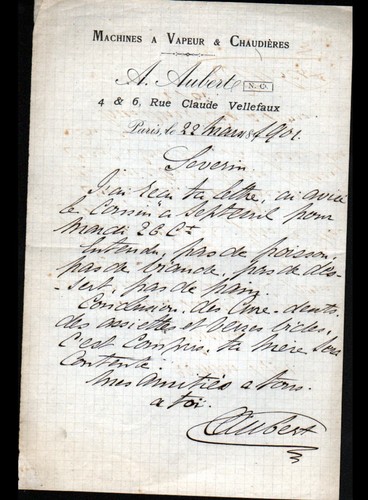 MACHINES A VAPEUR & CHAUDIÈRES
A. Aubert N.C.
4 & 6, RUE CLAUDE VELLEFAUX
Paris, le 22 mars 1901
Séverin
J'ai reçu ta lettre, ai avisé
le Cousin à Septeuil pour
mardi 26 Ct
Entendu, pas de poisson,
pas de viande, pas de des-
sert, pas de pain.
Conclusion. des Cure-dents,
des assiettes et verres vides,
c'est Compris, ta mère sera
Contente.
Mes amitiés a tous.
a toi.
Aubert